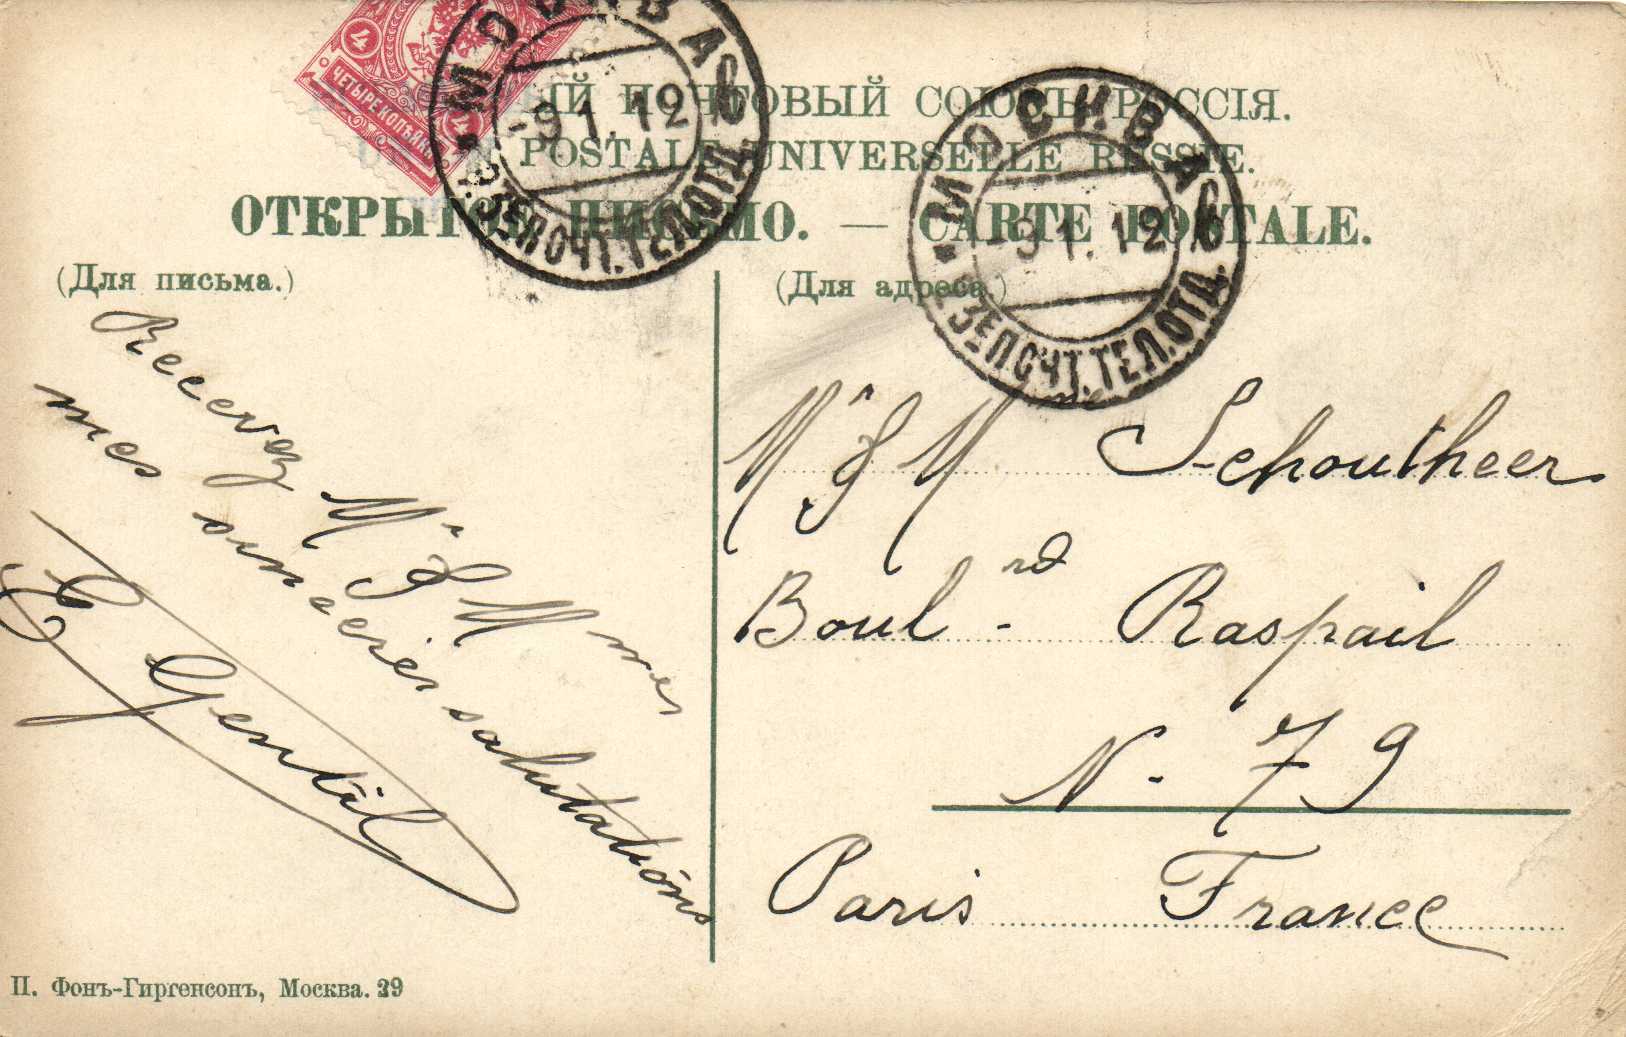 4
ЧЕТЫРЕ КОПѢЙКИ
4
МОСКВА
-9 1. 12
3Е ПОЧТ. ТЕЛ. ОТД.
МОСКВА
-9 1. 12
3Е ПОЧТ. ТЕЛ. ОТД.
ЫЙ ПОЧТОВЫЙ СОЮЗЪ. РОССІЯ.
POSTALE UNIVERSELLE RUSSIE.
ОТКРЫТОЕ ПИСЬМО. — CARTE POSTALE.
(Для письма.)
(Для адреса.)
Recevez Mr & Mme
mes sincères salutations
E Gentil
Mr & Mme Schoutheer
Boulrd - Raspail
N. 79
Paris France
П. Фонъ-Гиргенсонъ, Москва. 29